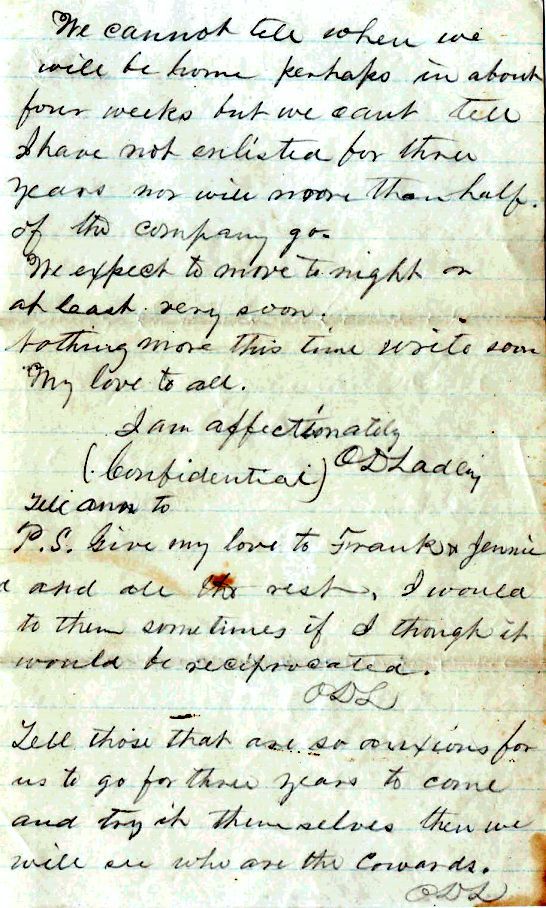 We cannot tell when we
will be home perhaps in about
four weeks but we cant tell
I have not enlisted for three
years nor will moore than half.
of the company go.
We expect to move to night or
at least very soon.
Nothing more this time write soon
My love to all.
I am affectionately
(Confidential) O D Ladley
Tell ann to
P.S. Give my love to Frank & Jennie
and all the rest, I would
to them sometimes if I though it
would be reciprocated.
ODL
Tell those that are so anxious for
us to go for three years to come
and try it themselves then we
will see who are the Cowards.
ODL